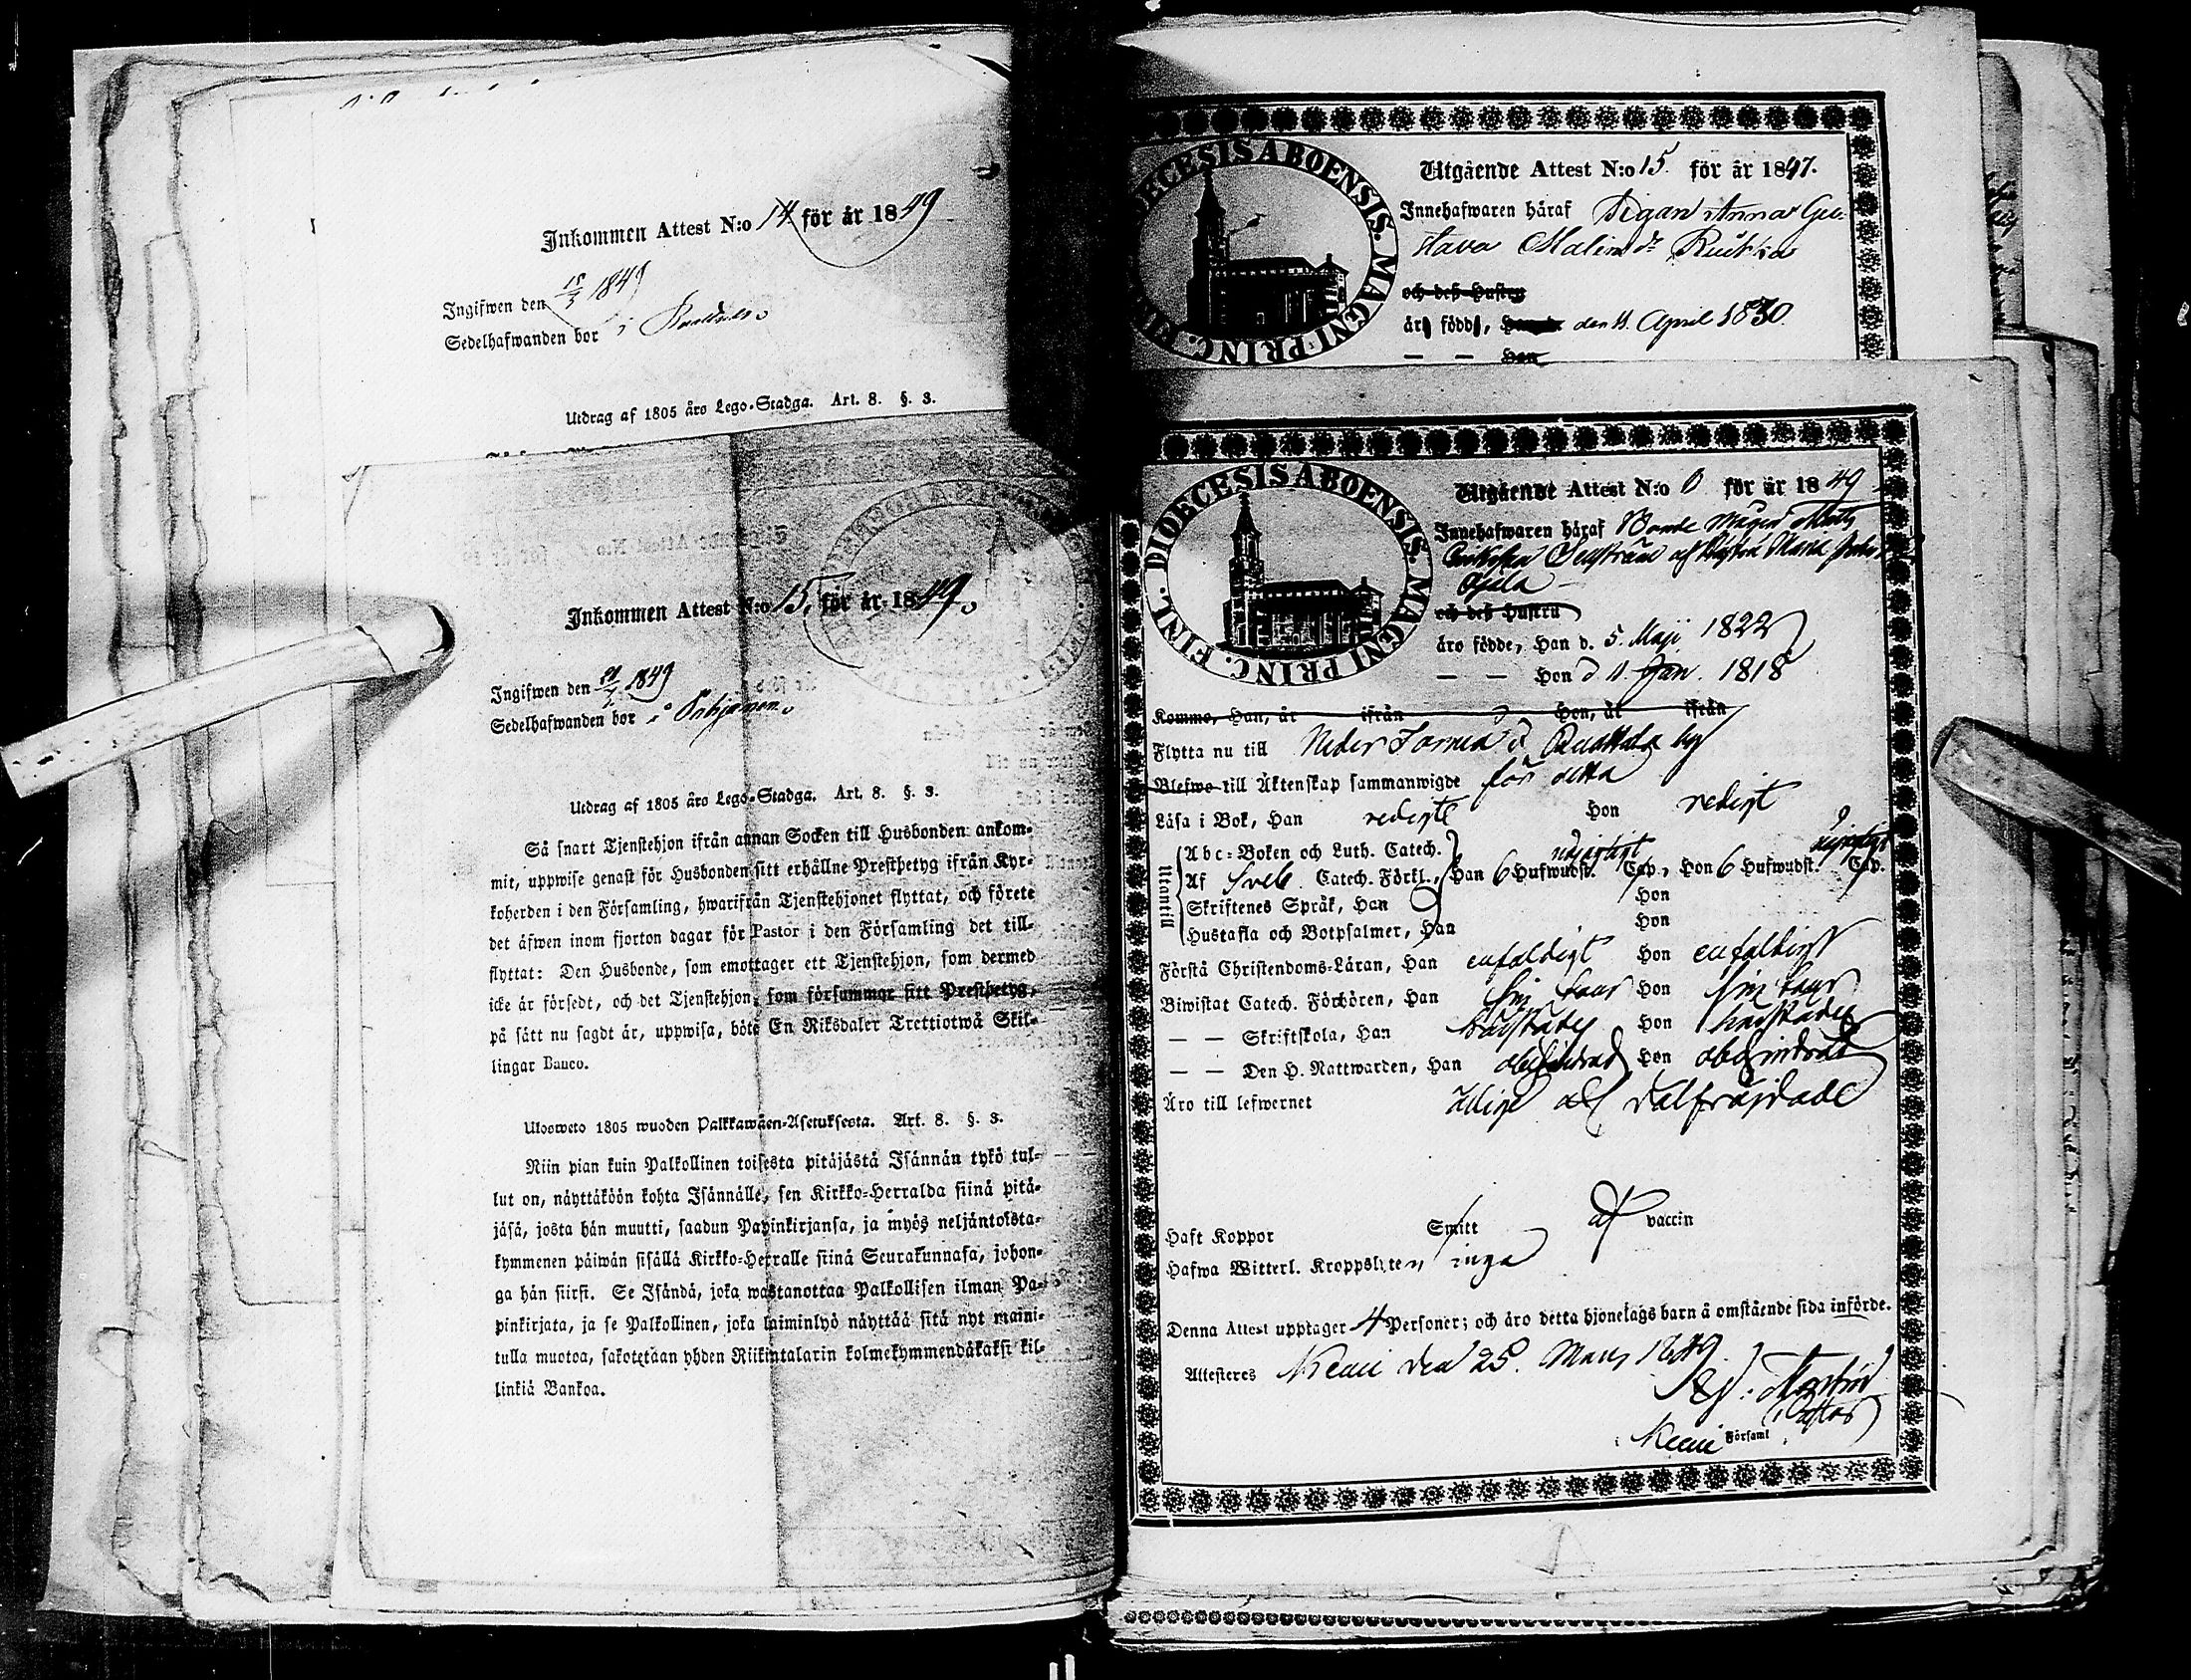 Inkommen Attest N:o 14 för år 1849
Ingifwen den 15/3 1849
Sedelhafwanden bor i
Utdrag af 1805 års Lego-Stadga. Art. 8. §. 3.
Inkommen Attest N:o 15, för år 1849.
Ingifwen den 1849
Sedelhafwanden bor i
Utdrag af 1805 års Lego-Stadga. Art. 8. §. 3.
Så snart Tjenstehjon ifrån annan Socken till Husbonden ankom-
mit, uppwise genast för Husbonden sitt erhållne Prestbetyg ifrån Kyr-
koherden i den Församling, hwarifrån Tjenstehjonet flyttat, och förete
det äfwen inom fjorton dagar för Pastor i den Församling det till-
flyttat: Den Husbonde, som emottager ett Tjenstehjon, som dermed
icke är försedt, och det Tjenstehjon, som försummar sitt Prestbetyg,
på sätt nu sagdt är, uppwisa, böte En Riksdaler Trettiotwå Skil-
lingar Banco.
Ulosweto 1805 wuoden Palkkawäen-Asetuksesta. Art. 8. §. 3.
Niin pian kuin Palkollinen toisesta pitäjästä Isännän tykö tul-
lut on, näyttäköön kohta Isännälle, sen Kirkko-Herralda siinä pitä-
jäsä, josta hän muutti, saadun Papinkirjansa, ja myös neljäntoista-
kymmenen päiwän sisällä Kirkko-Herralle siinä Seurakunnasa, johon-
ga hän siirsi. Se Isändä, joka wastanottaa Palkollisen ilman Pa-
pinkirjata, ja se Palkollinen, joka laiminlyö näyttää sitä nyt maini-
tulla muotoa, sakotetaan yhden Riikintalarin kolmekymmendäkaksi kil-
linkiä Bankoa.
DIOECESIS ABOENSIS. MAGNI PRINC. FINL.
Utgående Attest N:o 15. för år 1847.
Innehafwaren häraf Pigan Anna Gu-
stava Malim dr
och des Hustru
är född, den 11. April 1830.
— — Hon
DIOECESIS ABOENSIS. MAGNI PRINC. FINL.
Utgående Attest N:o för år 1849
Innehafwaren häraf Bonde Mågen Matts
Hustru Maria
och des Hustru
äro födde, Han d. 5. Maji 1822
— — Hon d 11. Jan. 1818
Komme, Han, år ifrån Hon, år ifrån
Flytta nu till Neder Torneå by
Blefwo till Äktenskap sammanwigde för detta
Läsa i Bok, Han redigt Hon redigt
Utantill
Abc-Boken och Luth. Catech.
Af Sveb. Catech. Förkl., Han 6 Hufwudst. Cap., Hon 6 Hufwudst. Cap.
Skriftenes Språk, Han Hon
Hustafla och Botpsalmer, Han Hon
Förstå Christendoms-Läran, Han enfaldigt Hon enfaldigt
Biwistat Catech. Förhören, Han Hon
— — Skriftskola, Han Hon
— — Den H. Nattwarden, Han obehindrad Hon obehindrad
Äro till lefwernet ärlige och välfräjdade
Haft Koppor Smitt af vaccin
Hafwa Witterl. Kroppslyten inga
Denna Attest upptager 4 Personer; och äro detta hjonelags barn å omstående sida införde.
Attesteras Kemi den 25. Mars 1849
Pastor
Kemi Församl